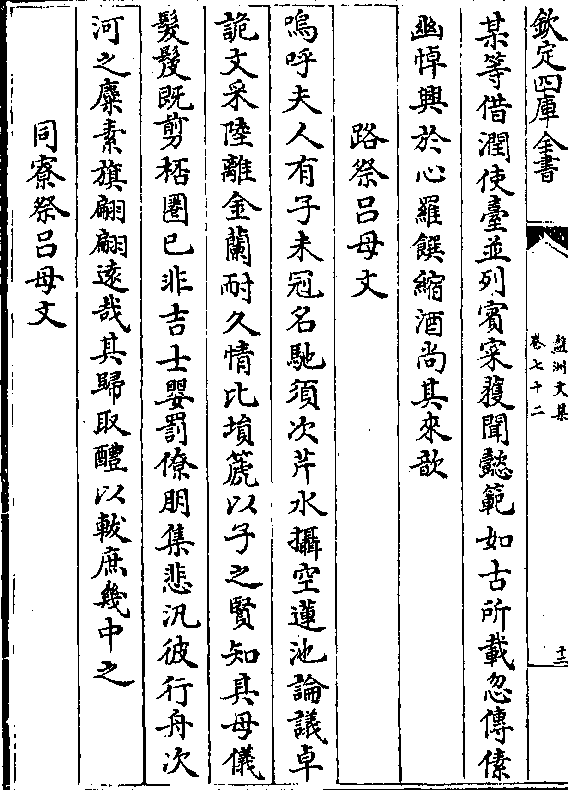 欽定四庫全書
蘇洲文集
卷七十二
十三
某等借潤使臺並列賓寀獲聞懿範如古所載忽傳傃
幽悼興於心羅饌縮酒尚其來歆
路祭吕母文
嗚呼夫人有子未冠名馳須次芹水攝空蓮池論議卓
詭文采陸離金蘭耐久情比塤箎以子之賢知其母儀
髮髲既剪桮圈已非吉士嬰罰僚朋集悲汎彼行舟次
河之麋素旗翩翩逺哉其歸取醴以軷庶幾中之
同寮祭吕母文